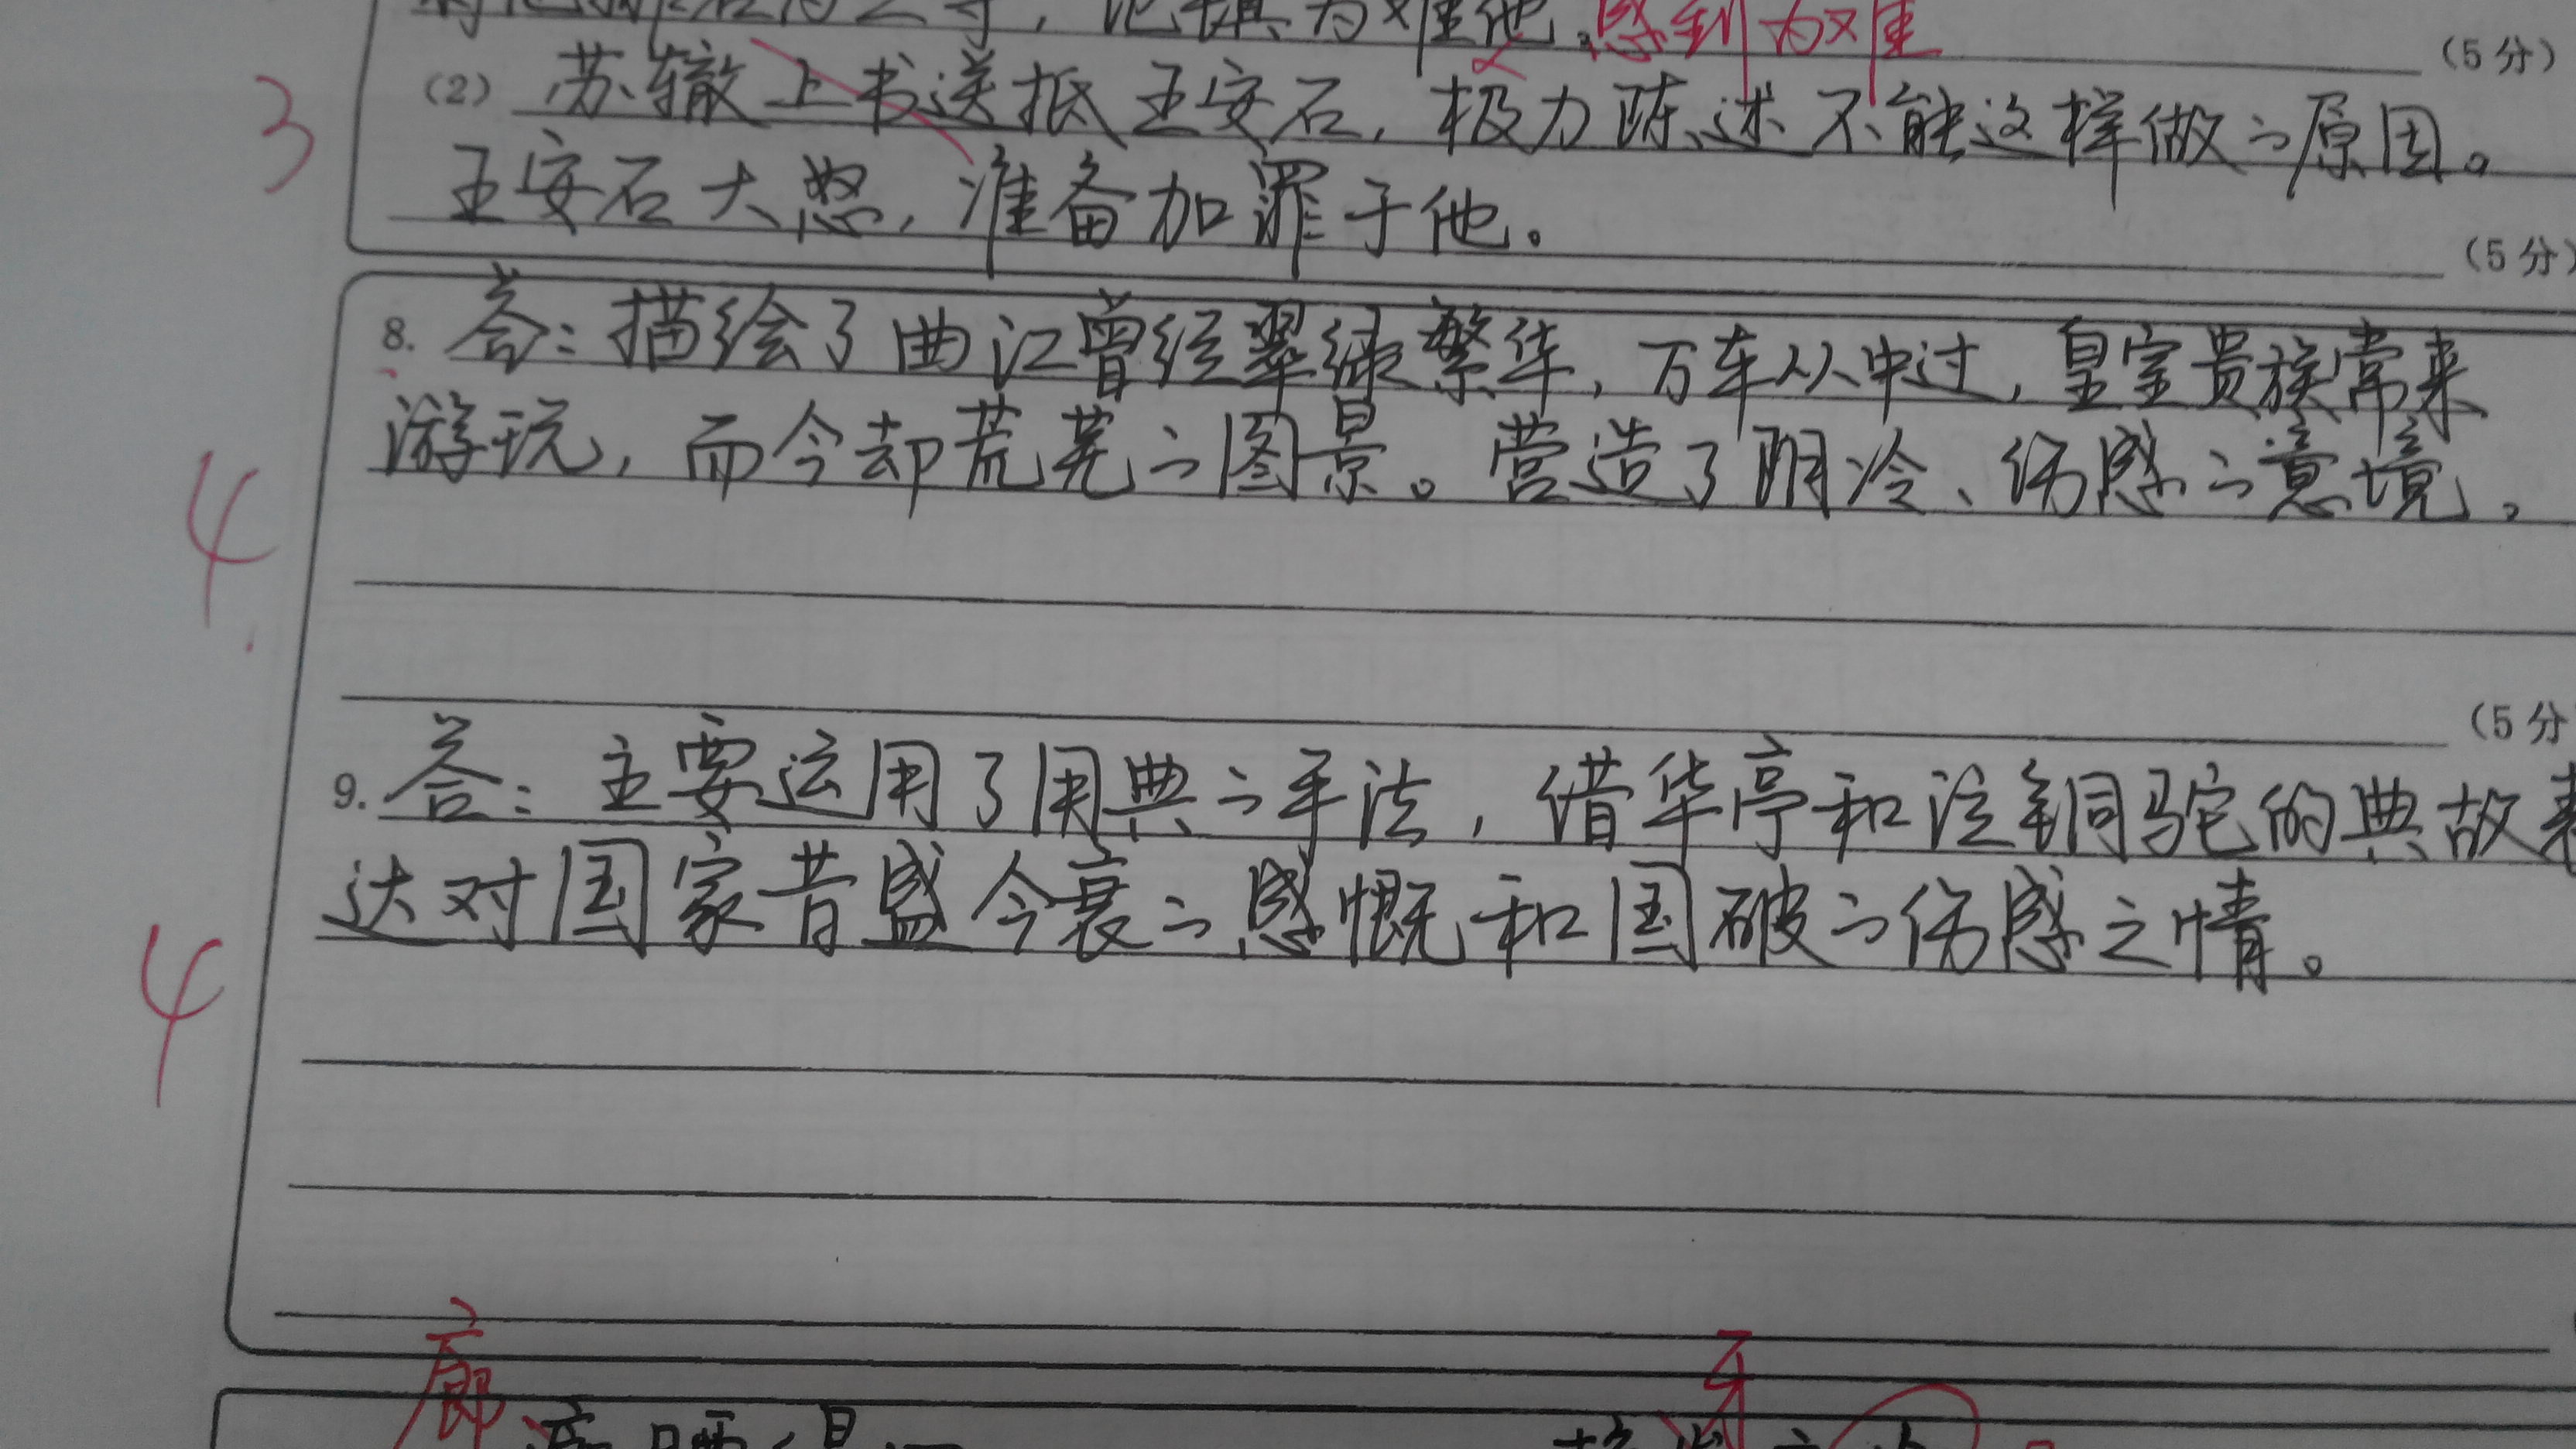 为难他。感到为难
（5分）
（2）苏辙上书送抵王安石，极力陈述不能这样做的原因。
王安石大怒，准备加罪于他。
（5分）
8.答：描绘了曲江曾经翠绿繁华，万车从中过，皇室贵族常来
游玩，而今却荒芜的图景。营造了阴冷、伤感的意境。
（5分
9.答：主要运用了用典的手法，借华亭和泣铜驼的典故表
达对国家昔盛今衰的感慨和国破的伤感之情。
3
4
4
廊